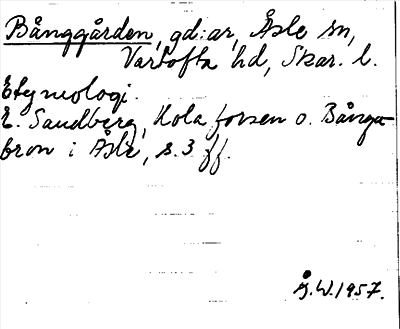 Bånggården, gd:ar, Åsle sn,
Vartofta hd, Skar. l.
Etymologi.
E. Sandberg, Kola forsen o. Bånga-
bron i Åsle, s. 3 ff.
Å.W. 1957.